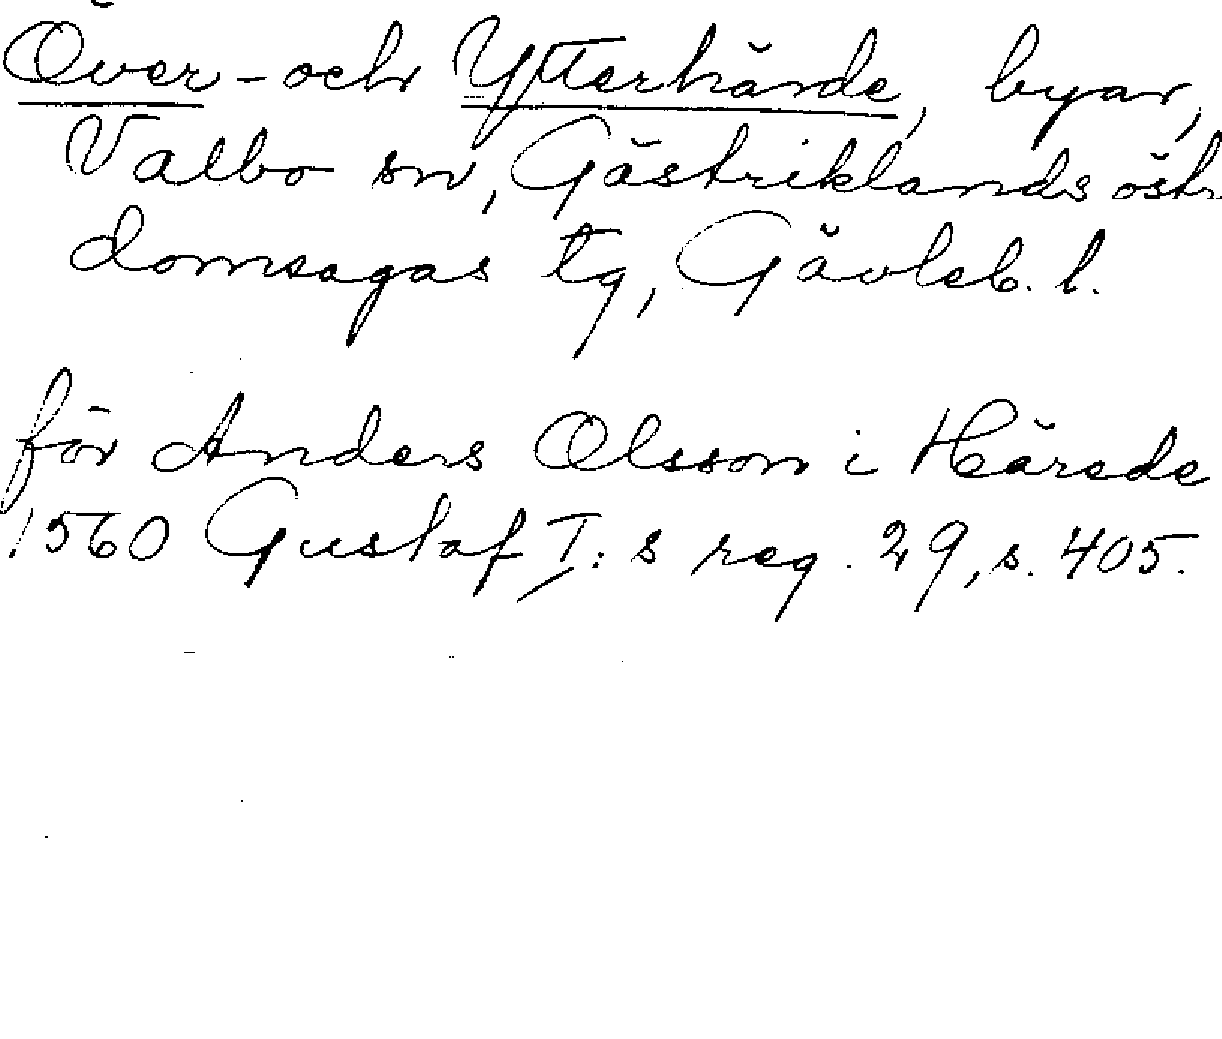 Över- och Ytterhärde, byar,
Valbo sn, Gästriklands östr.
domsagas tg, Gävleb. l.
för Anders Olsson i Härede
1560 Gustaf I:s reg. 29, s. 405.